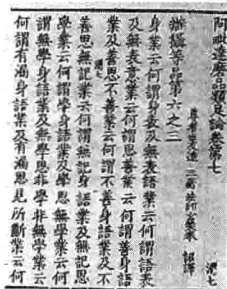 阿毗達磨品類足論卷第七 沛七
尊者世友造 三藏法師玄奘奉 詔譯
辯攝等品第六之三
身業云何謂身表及無表語業云何謂語表
及無表意業云何謂思善業云何謂善身語
業及善思不善業云何謂不善身語業及不
善思無記業云何謂無記身語業及無記思
學業云何謂學身語業及學思無學業云何
謂無學身語業及無學思非學非無學業云
何謂有漏身語業及有漏思見所斷業云何